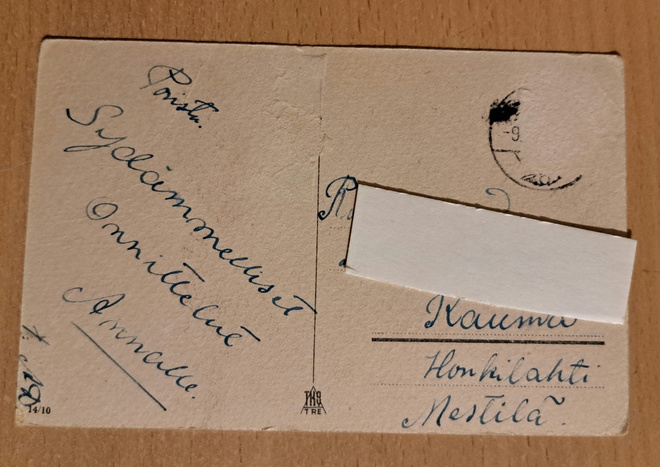 Sydämmelliset
Onnittelut
Annalle.
14/10
TKO
TRE
-9.
Rauma
Honkilahti
Mestilä.